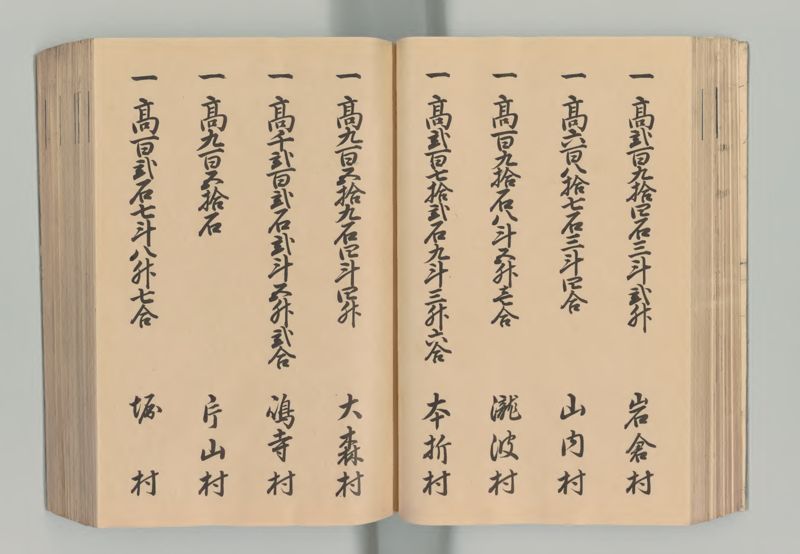 一 高弐百九拾四石三斗弐升 岩倉村
一 高六百八拾七石三斗四合 山内村
一 高百九拾石八斗五升壱合 瀧波村
一 高弐百七拾弐石九斗三升六合 本折村
一 高九百五拾九石四斗四升 大森村
一 高千弐百弐石弐斗五升弐合 嶋寺村
一 高九百五拾石 片山村
一 高百弐石七斗八升七合 堀村